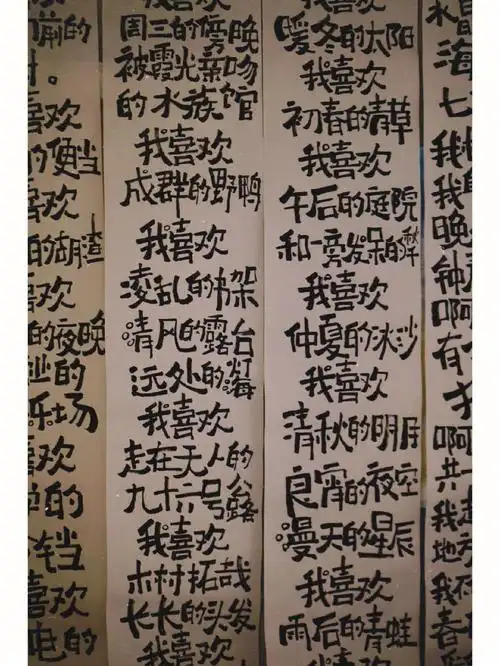 前的
时。
喜欢
的便当
喜欢
的胡渣
喜欢
的夜晚
业的
乐场
喜欢
的
铛
喜欢
电的
我喜欢
周三的傍晚
被霞光亲吻
的水族馆
我喜欢
成群的野鸭
我喜欢
凌乱的书架
清风的露台
远处的海
我喜欢
走在无人的
九十六号公路
我喜欢
木村拓哉
长长的头发
我喜欢
我喜欢
暖冬的太阳
我喜欢
初春的青草
我喜欢
午后的庭院
和一旁发呆的
我喜欢
仲夏的冰沙
我喜欢
清秋的明月
良宵的夜空
漫天的星辰
我喜欢
雨后的青蛙
我喜欢
水
海
七
我
我
晚
钟
啊
有
才
啊
共
我
地
我
春